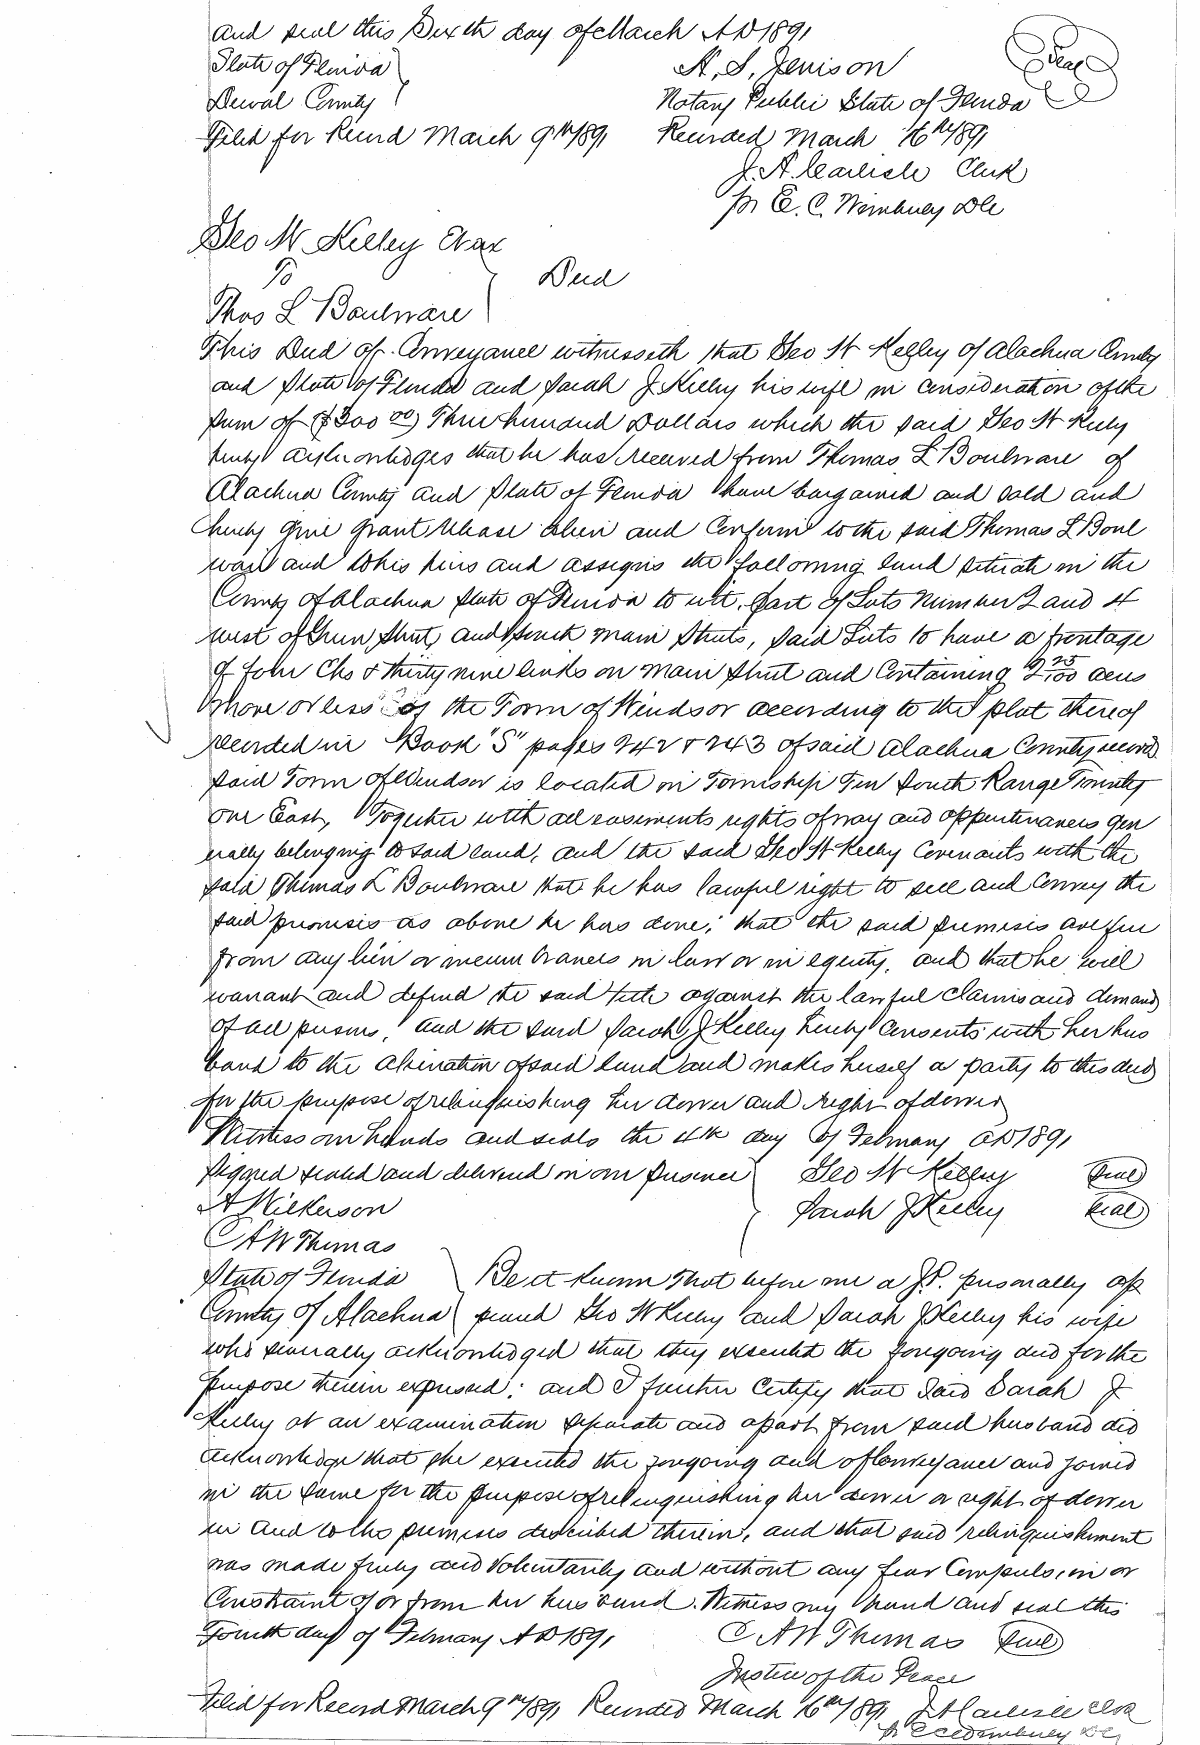 and seal this Sixth day of March AD 1891
State of Florida
Duval County
H. S. Jenison
Seal
Notary Public State of Florida
Filed for Record March 9th/891 Recorded March 16th/891
J. A. Carlisle Clerk
pr E. C. Wimberley DC
Geo W Kelley & ux
To
Deed
Thos L Boulware
This Deed of Conveyance witnesseth that Geo W Kelley of Alachua County
and State of Florida and Sarah J Kelley his wife in consideration of the
sum of ($300 00) Three hundred Dollars which the said Geo W Kelley
hereby acknowledges that he has received from Thomas L Boulware of
Alachua County and State of Florida have bargained and sold and
hereby give grant release alien and confirm to the said Thomas L Boul
ware and to his heirs and assigns the following land situate in the
County of Alachua State of Florida to wit. Part of Lots Number 2 and 4
west of Green Street, and South main Streets, said Lots to have a frontage
of four Chs & thirty nine links on main Street and Containing 2 25/100 acres
more or less of the Town of Windsor according to the plat thereof
recorded in Book "S" pages 242 & 243 of said Alachua County records
said Town of Windsor is located in Township Ten South Range Twenty
one East, Together with all easements rights of way and appurtenances gen
erally belonging to said land, and the said Geo W Kelley Covenants with the
said Thomas L Boulware that he has lawful right to sell and Convey the
said premises as above he has done; that the said premises are free
from any lien or incumbrances in law or in equity, and that he will
warrant and defend the said title against the lawful claims and demands
of all persons, and the said Sarah J Kelley hereby Consents with her hus
band to the alienation of said land and makes herself a party to this deed
for the purpose of relinquishing her dower and right of dower
Witness our hands and seals the 4th day of February AD 1891
Signed sealed and delivered in our presence
Geo W Kelley Seal
A Wilkerson
Sarah J Kelley Seal
C A W Thomas
State of Florida
County of Alachua
Be it known That before me a J.P. personally ap
peared Geo W Kelley and Sarah J Kelley his wife
who severally acknowledged that they executed the foregoing deed for the
purpose therein expressed; and I further Certify that said Sarah J
Kelley at an examination separate and apart from said husband did
acknowledge that she executed the foregoing deed of Conveyance and joined
in the same for the purpose of relinquishing her dower or right of dower
in and to the premises described therein, and that said relinquishment
was made freely and Voluntarily and without any fear Compulsion or
Constraint of or from her husband. Witness my hand and seal this
Fourth day of February AD 1891
C A W Thomas Seal
Justice of the Peace
Filed for Record March 9th/891 Recorded March 16th/891 J A Carlisle Clerk
pr E C Wimberley DC